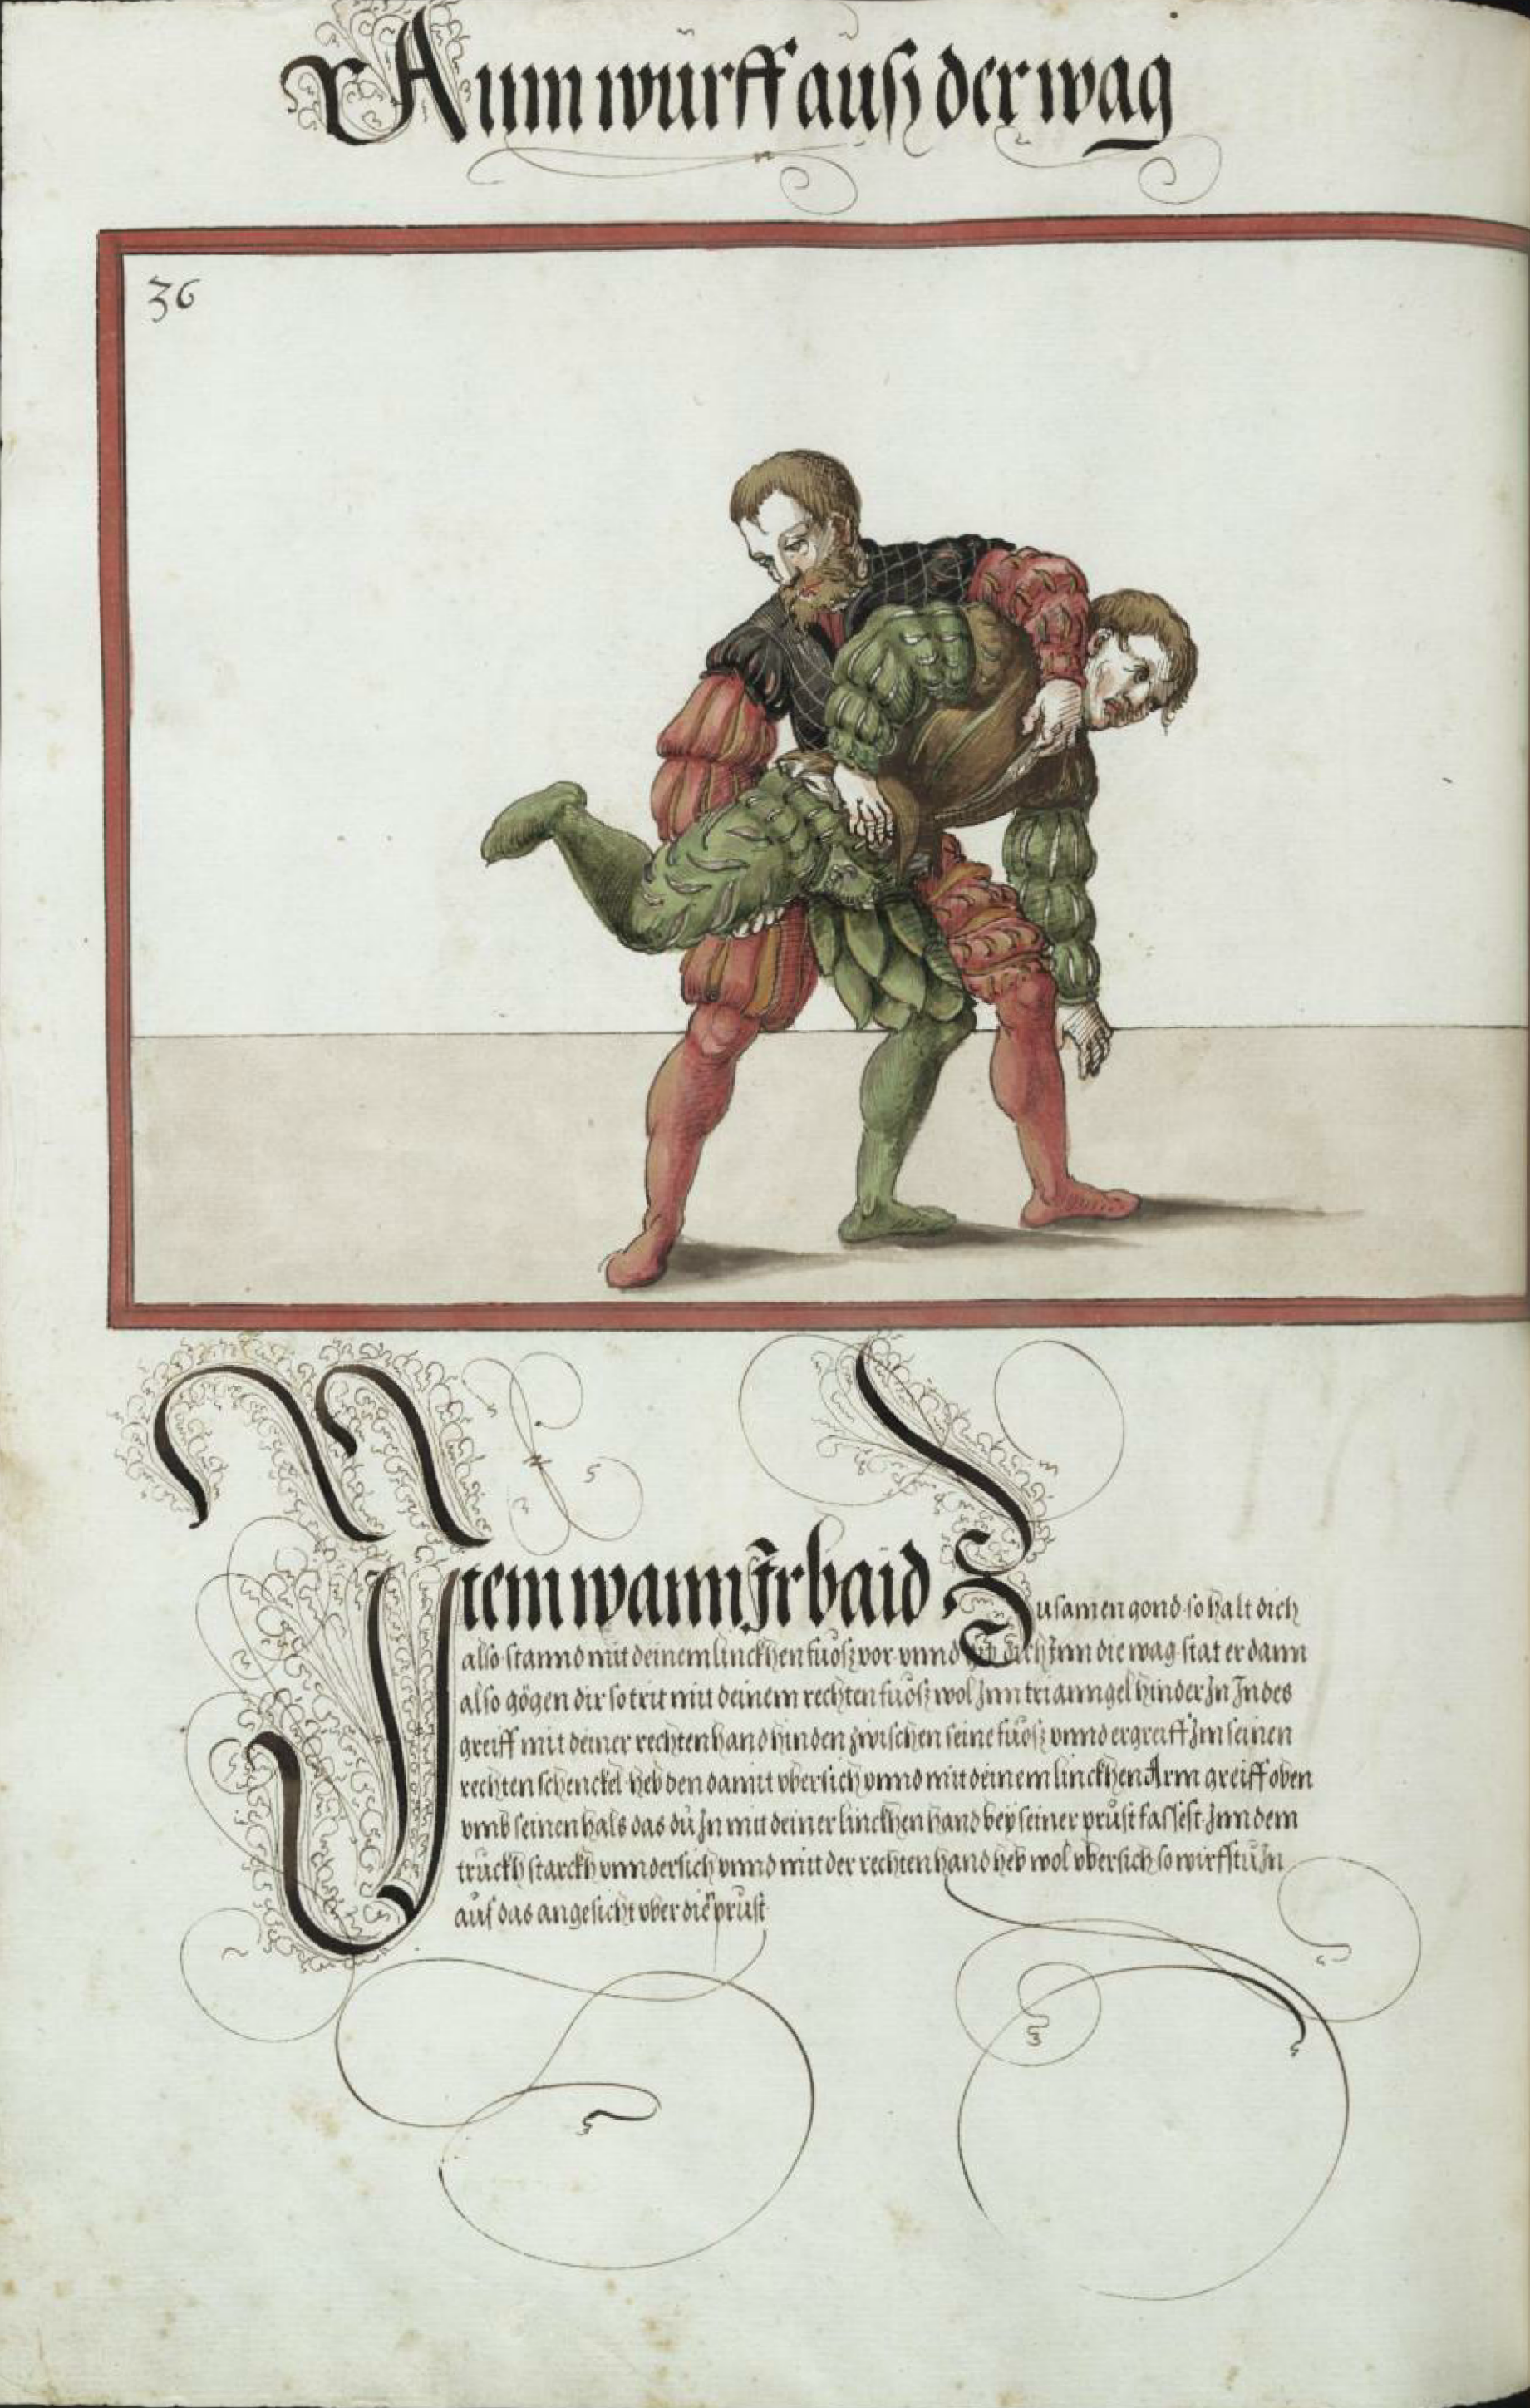 Ainn wurff ausz der wag
36
Item wann Ir baid Zusamen gond so halt dich
also stannd mit deinem linckhen fuosz vor vnnd dich Inn die wag stat er dann
also gögen dir so trit mit deinem rechten fuosz wol Inn trianngel hinder In Indes
greiff mit deiner rechten hand hinden zwischen seine fuosz vnnd ergreiff Im seinen
rechten schenckel heb den damit vbersich vnnd mit deinem linckhen Arm greiff oben
vmb seinen hals das du In mit deiner linckhen hand bey seiner prust fassest Inn dem
truckh starckh vnndersich vnnd mit der rechten hand heb wol vbersich so wirffstu In
auf das angesicht vber die prust